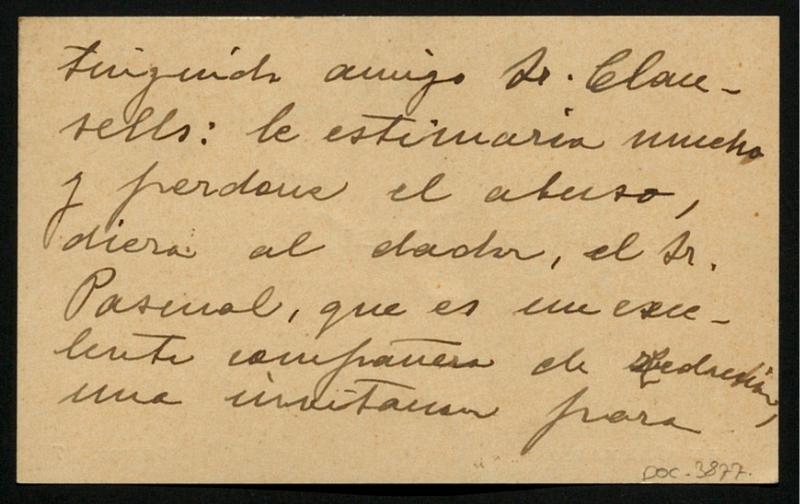 tinguido amigo Sr. Clau-
sells: le estimaria mucho
y perdone el abuso,
diera al dador, el Sr.
Pascual, que es un exce-
lente compañero de Redaccion,
una invitacion para
DOC. 3877.